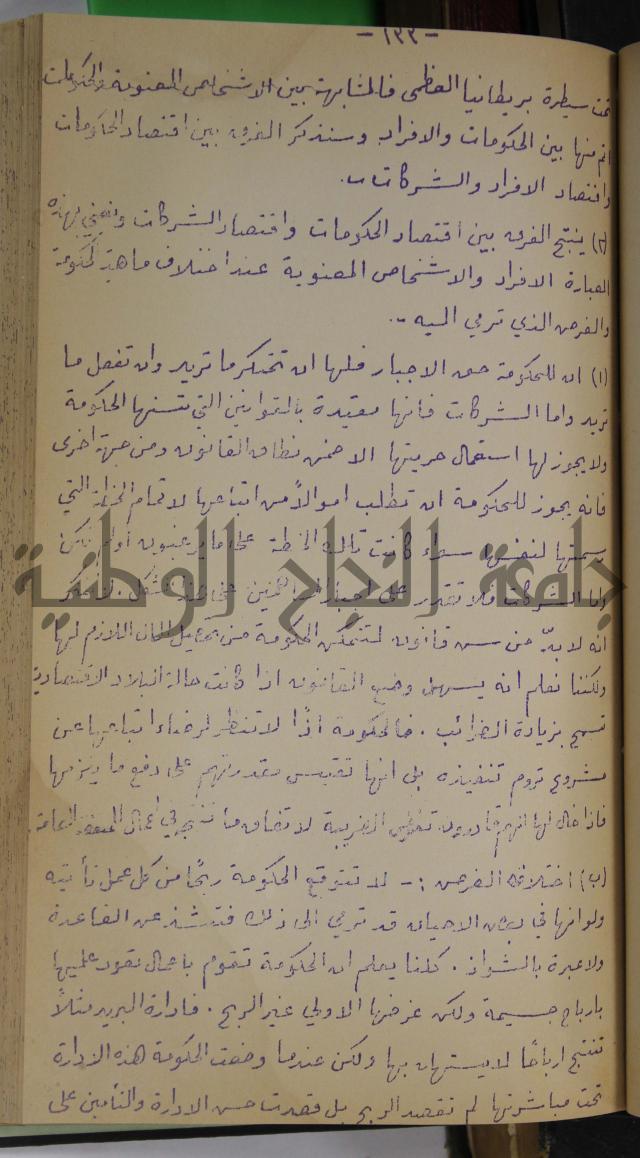 -١٢٢-
تحت سيطرة بريطانيا العظمى فالمشابهة بين الاشخاص المعنوية والحكومات
اتم منها بين الحكومات والافراد وسنذكر الفرق بين اقتصاد الحكومات
واقتصاد الافراد والشركات ..
(٢) ينتج الفرق بين اقتصاد الحكومات واقتصاد الشركات ونعني بهذه
العبارة الافراد والاشخاص المعنوية عند اختلاف ماهية الحكومة
والغرض الذي ترمي اليه ..
(١) ان للحكومة حق الاجبار فلها ان تحتكر ما تريد وان تفعل ما
تريد واما الشركات فانها مقيدة بالقوانين التي تسنها الحكومة
ولا يجوز لها استعمال حريتها الا ضمن نطاق القانون ومن جهة اخرى
فانه يجوز للحكومة ان تطلب اموالاً من اتباعها لاتمام الخطة التي
رسمتها لنفسها سواء كانت تلك الخطة على ما يرغبون او لم تكن
واما الشركات فلا تقدر على اجبار المساهمين على هذا الشكل.
انه لا بدّ من سن قانون لتتمكن الحكومة من تحصيل المال اللازم لها
ولكننا نعلم انه يسهل وضع القانون اذا كانت حالة البلاد الاقتصادية
تسمح بزيادة الضرائب . فالحكومة اذًا لا تنظر لرضاء اتباعها عن
مشروع تروم تنفيذه بل انها تقيس مقدرتهم على دفع ما يلزمها
فاذا خال لها انهم قادرون تفرض الضريبة
(ب) اختلاف الغرض :- لا تتوقع الحكومة ربحًا من كل عمل تأتيه
ولو انها في بعض الاحيان قد ترمي الى ذلك فتشذ عن القاعدة
ولا عبرة بالشواذ . كلنا يعلم ان الحكومة تقوم باعمال تعود عليها
بارباح جسيمة ولكن غرضها الاولي غير الربح . فادارة البريد مثلاً
تنتج ارباحًا لا يستهان بها ولكن عندما وضعت الحكومة هذه الادارة
تحت مباشرتها لم تقصد الربح بل قصدت حسن الادارة والتأمين على
جامعة النجاح الوطنية